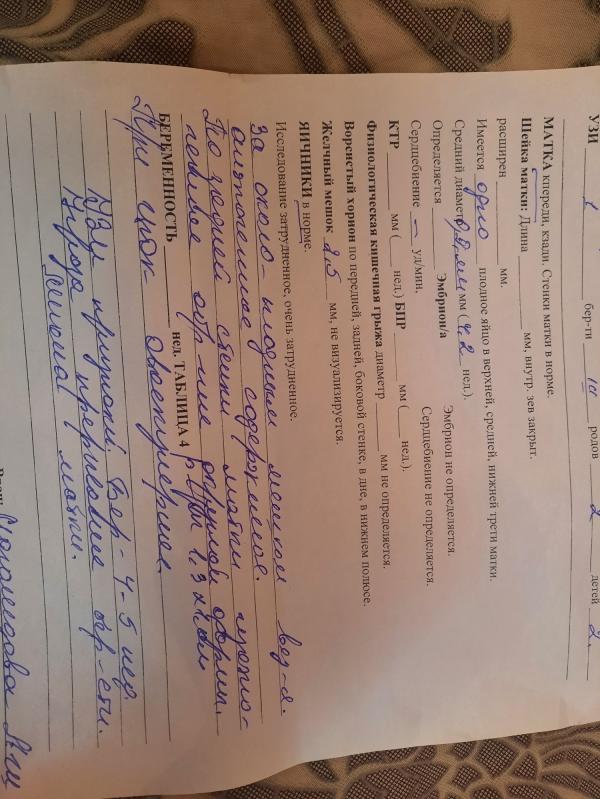 УЗИ 1 бер-ти III родов 2 детей 2.
МАТКА кпереди, кзади. Стенки матки в норме.
Шейка матки: Длина мм, внутр. зев закрыт.
расширен мм.
Имеется одно плодное яйцо в верхней, средней, нижней трети матки.
Средний диаметр мм ( 4.2 нед.).
Определяется Эмбрион/а Эмбрион не определяется.
Сердцебиение — уд/мин. Сердцебиение не определяется.
КТР мм ( нед.) БПР мм ( нед.).
Физиологическая кишечная грыжа диаметр мм не определяется.
Ворсистый хорион по передней, задней, боковой стенке, в дне, в нижнем полюсе.
Желчный мешок 2,5 мм, не визуализируется.
ЯИЧНИКИ в норме.
Исследование затрудненное, очень затрудненное.
За около-плодным мешком виз-я.
анэхогенное содержимое.
По задней стенке матки
округлой формы.
БЕРЕМЕННОСТЬ нед. ТАБЛИЦА 4 1.3х1.0см
При цдк
УЗИ признаки: Бер- 4-5 нед.
Угроза прерывание бер-сти.
Миома матки.
Врач: